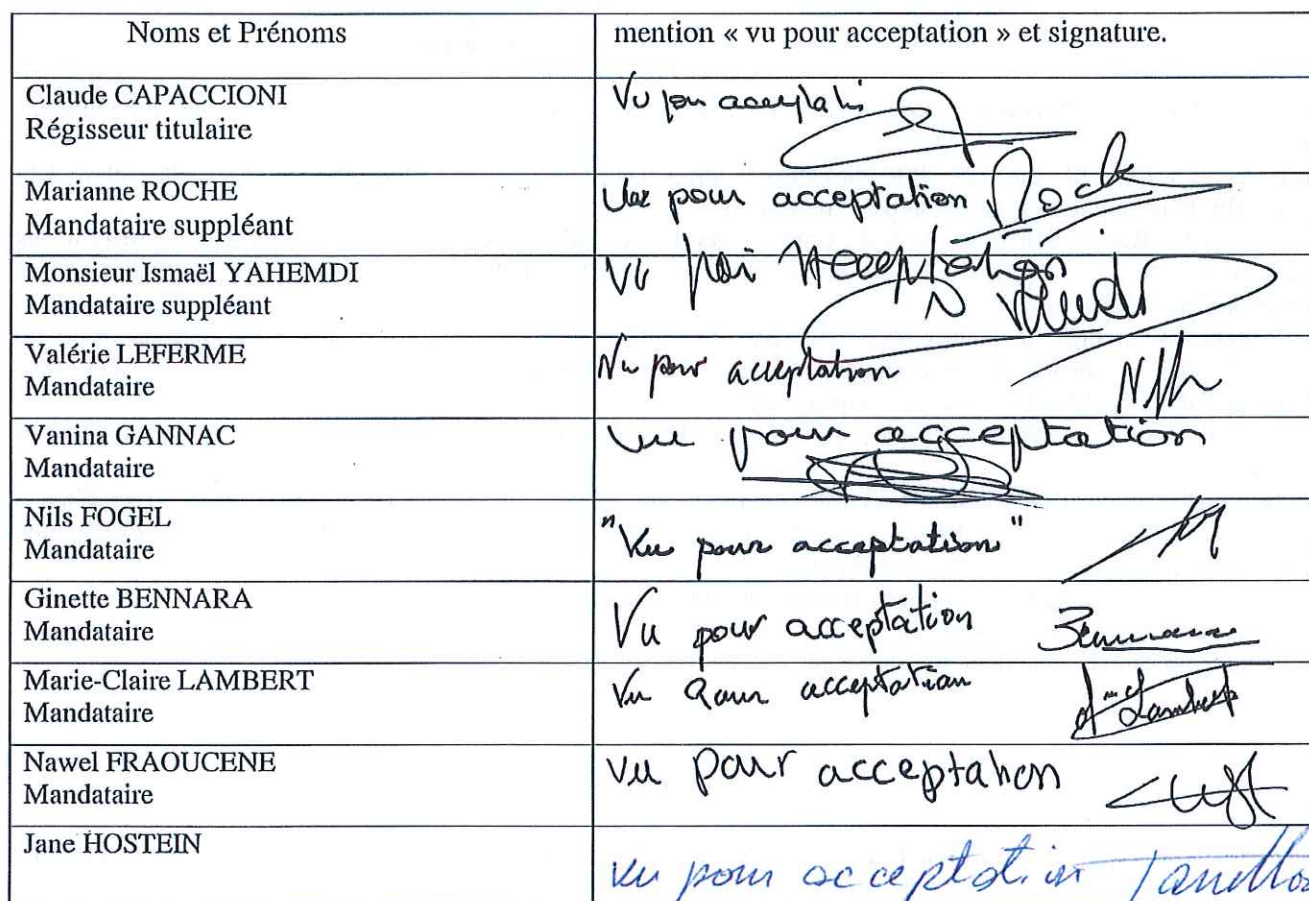 Noms et Prénoms
mention « vu pour acceptation » et signature.
Claude CAPACCIONI
Régisseur titulaire
Vu pour acceptation
Marianne ROCHE
Mandataire suppléant
Vu pour acceptation Roche
Monsieur Ismaël YAHEMDI
Mandataire suppléant
Vu pour Acceptation
Valérie LEFERME
Mandataire
Vu pour acceptation
Vanina GANNAC
Mandataire
Vu pour acceptation
Nils FOGEL
Mandataire
"Vu pour acceptation"
Ginette BENNARA
Mandataire
Vu pour acceptation
Marie-Claire LAMBERT
Mandataire
Vu Pour acceptation
Lambert
Nawel FRAOUCENE
Mandataire
Vu pour acceptation
Jane HOSTEIN
Vu pour acceptation